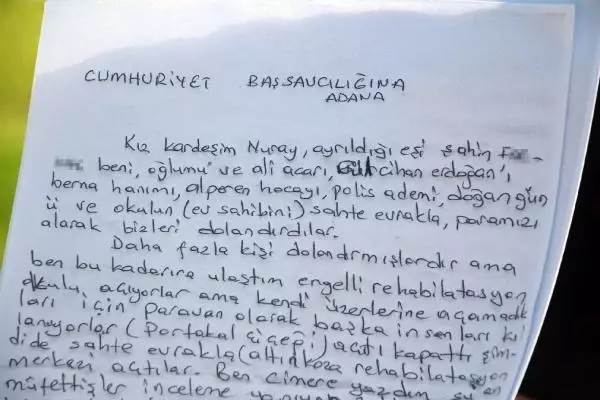 CUMHURİYET BAŞSAVCILIĞINA
ADANA
Kız kardeşim Nuray, ayrıldığı eşi şahin
beni, oğlumu ve ali acarı, cihan erdoğan'ı
berna hanımı, alperen hocayı, polis ademi, doğan gün
ü ve okulun (ev sahibini) sahte evrakla, paramızı
alarak bizleri dolandırdılar.
Daha fazla kişi dolandırmışlardır ama
ben bu kadarına ulaştım engelli rehabilatasyon
okulu, açıyorlar ama kendi üzerlerine açamadık
ları için paravan olarak başka insanları kı
lanıyorlar (Portakal çiçeği) açtı kapattı şim-
dide sahte evrakla (altınkoza rehabilatasyon
merkezi açtılar. Ben cimere yazdım şu an
müfettişler inceleme